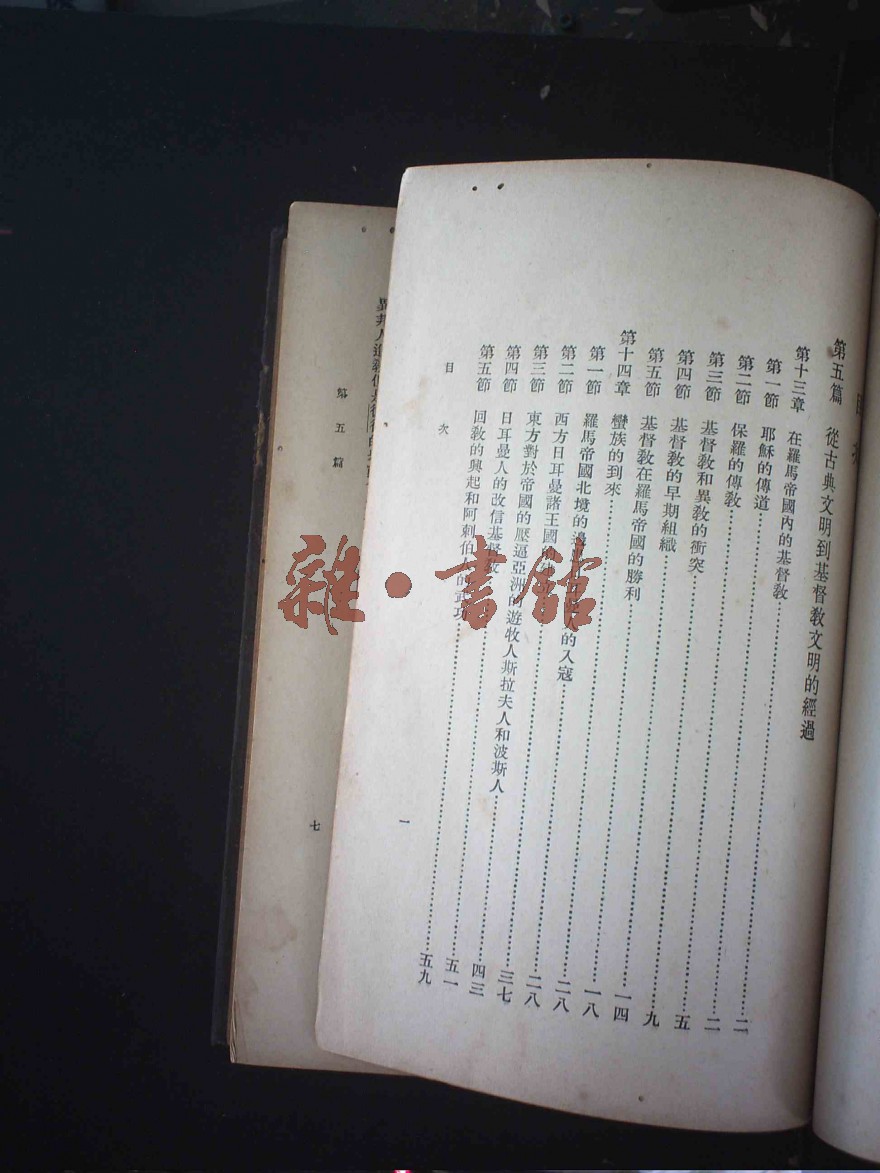 第五篇 從古典文明到基督教文明的經過
第十三章 在羅馬帝國內的基督教……二
第一節 耶穌的傳道……二
第二節 保羅的傳教……五
第三節 基督教和異教的衝突……九
第四節 基督教的早期組織……一四
第五節 基督教在羅馬帝國的勝利……一八
第十四章 蠻族的到來……二八
第一節 羅馬帝國北境的邊 人的入寇……二八
第二節 西方日耳曼諸王國……三七
第三節 東方對於帝國的壓逼亞洲的遊牧人斯拉夫人和波斯人……四三
第四節 日耳曼人的改信基督教……五一
第五節 回教的興起和阿剌伯 的武功……五九
目次 一
第五篇 七
雜·書館